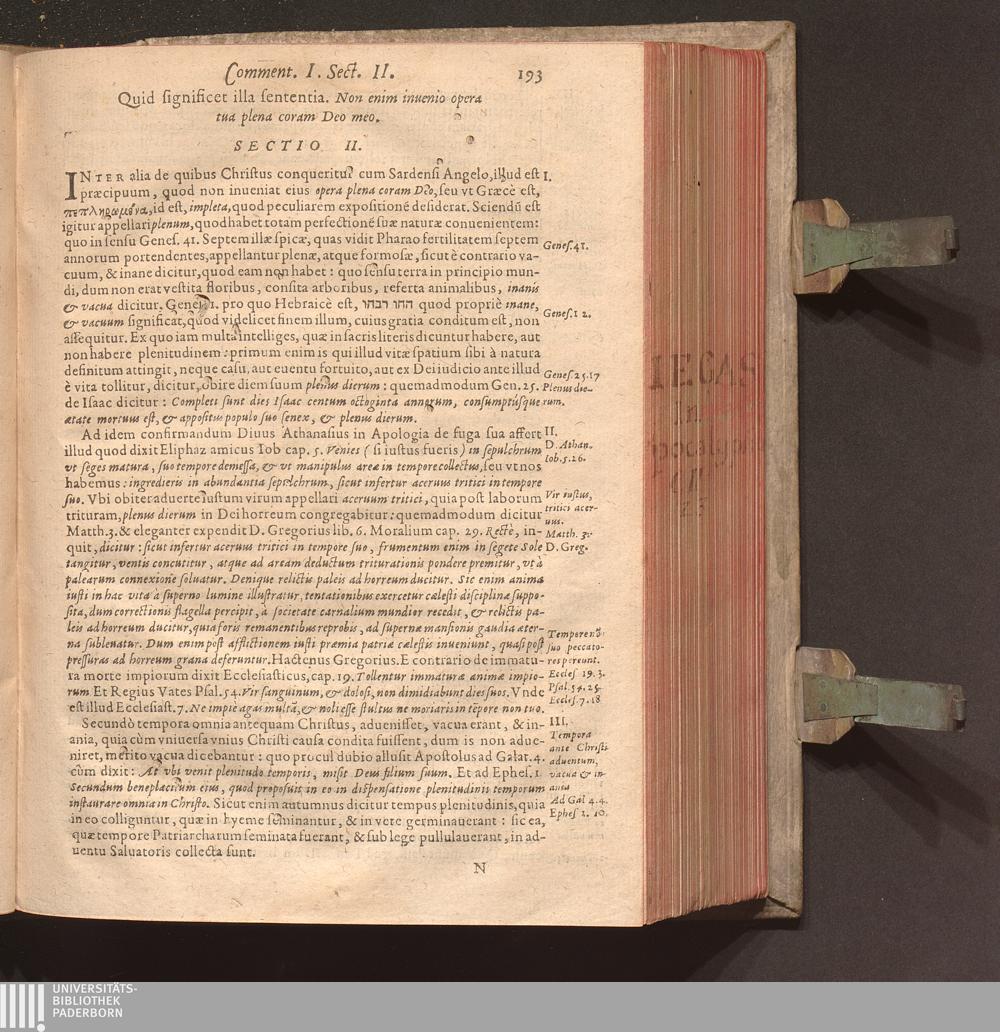 Comment. I. Sect. II. 193
Quid significet illa sententia. Non enim inuenio opera
tua plena coram Deo meo.
SECTIO II.
INTER alia de quibus Christus conqueritur cum Sardensi Angelo, illud est
præcipuum, quod non inueniat eius opera plena coram Deo, seu vt Græcè est,
πεπληρωμένα, id est, impleta, quod peculiarem expositionē desiderat. Sciendū est
igitur appellari plenum, quod habet totam perfectionē suæ naturæ conuenientem:
quo in sensu Genes. 41. Septem illæ spicæ, quas vidit Pharao fertilitatem septem
annorum portendentes, appellantur plenæ, atque formosæ, sicut è contrario va-
cuum, & inane dicitur, quod eam non habet: quo sensu terra in principio mun-
di, dum non erat vestita floribus, consita arboribus, referta animalibus, inanis
& vacua dicitur. Genes. 1. pro quo Hebraicè est, quod propriè inane,
& vacuum significat, quod videlicet finem illum, cuius gratia conditum est, non
assequitur. Ex quo iam multa intelliges, quæ in sacris literis dicuntur habere, aut
non habere plenitudinem: primum enim is qui illud vitæ spatium sibi à natura
definitum attingit, neque casu, aut euentu fortuito, aut ex Dei iudicio ante illud
è vita tollitur, dicitur, obire diem suum plenus dierum: quemadmodum Gen. 25.
de Isaac dicitur: Completi sunt dies Isaac centum octoginta annorum, consumptúsque
ætate mortuus est, & appositus populo suo senex, & plenus dierum.
Ad idem confirmandum Diuus Athanasius in Apologia de fuga sua affert
illud quod dixit Eliphaz amicus Iob cap. 5. Venies (si iustus fueris) in sepulchrum
vt seges matura, suo tempore demessa, & vt manipulus areæ in tempore collectus, seu vt nos
habemus: ingredieris in abundantia sepulchrum, sicut infertur aceruus tritici in tempore
suo. Vbi obiter aduerte iustum virum appellari aceruum tritici, quia post laborum
trituram, plenus dierum in Dei horreum congregabitur: quemadmodum dicitur
Matth. 3. & eleganter expendit D. Gregorius lib. 6. Moralium cap. 29. Rectè, in-
quit, dicitur: sicut infertur aceruus tritici in tempore suo, frumentum enim in segete Sole
tangitur, ventis concutitur, atque ad aream deductum triturationis pondere premitur, vt à
palearum connexione soluatur. Denique relictis paleis ad horreum ducitur. Sic enim anima
iusti in hac vita à superno lumine illustratur, tentationibus exercetur cælesti disciplinæ suppo-
sita, dum correctionis flagella percipit, à societate carnalium mundior recedit, & relictis pa-
leis ad horreum ducitur, quia foris remanentibus reprobis, ad supernæ mansionis gaudia æter-
na subleuatur. Dum enim post afflictionem iusti præmia patriæ cælestis inueniunt, quasi post
pressuras ad horreum grana deferuntur. Hactenus Gregorius. E contrario de immatu-
ra morte impiorum dixit Ecclesiasticus, cap. 19. Tollentur immaturæ animæ impio-
rum. Et Regius Vates Psal. 54. Vir sanguinum, & dolosi, non dimidiabunt dies suos. Vnde
est illud Ecclesiast. 7. Ne impiè agas multū, & noli esse stultus ne moriaris in tēpore non tuo.
Secundò tempora omnia antequam Christus, aduenisset, vacua erant, & in-
ania, quia cùm vniuersa vnius Christi causa condita fuissent, dum is non adue-
niret, meritò vacua dicebantur: quo procul dubio allusit Apostolus ad Galat. 4.
cùm dixit: At vbi venit plenitudo temporis, misit Deus filium suum. Et ad Ephes. 1
Secundum beneplacitum eius, quod proposuit in eo in dispensatione plenitudinis temporum
instaurare omnia in Christo. Sicut enim autumnus dicitur tempus plenitudinis, quia
in eo colliguntur, quæ in hyeme seminantur, & in vere germinauerant: sic ea,
quæ tempore Patriarcharum seminata fuerant, & sub lege pullulauerant, in ad-
uentu Saluatoris collecta sunt.
N
I.
Genes. 41.
Genes. 1 2.
Genes. 25. 17
Plenus die-
rum.
II.
D. Athan.
Iob. 5. 26.
Vir iustus,
tritici acer-
uus.
Matth. 3.
D. Greg.
suo peccato-
res pereunt.
Eccles 19. 3.
Psal. 54. 25.
Eccles. 7. 18
III.
Tempora
ante Christi
aduentum,
vacua & in
ania
Ad Gal 4. 4.
Ephes 1. 10.
IEGAS
in
II
UNIVERSITÄTS-
BIBLIOTHEK
PADERBORN